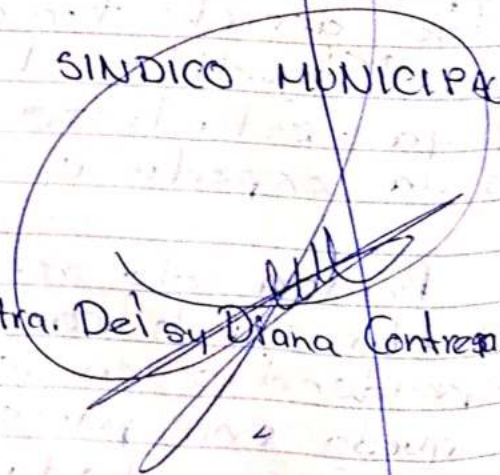 SINDICO MUNICIPAL
tra. Deisy Diana Contreras